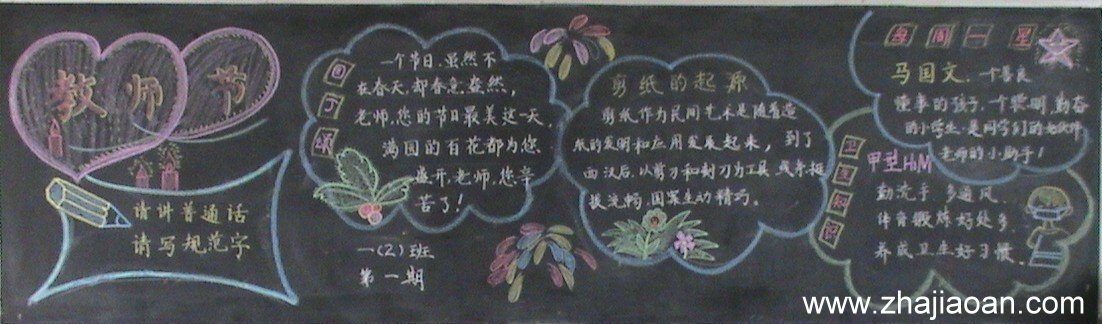 教师节
请讲普通话
请写规范字
园丁颂
一个节日,虽然不
在春天,却春意盎然,
老师,您的节日最美这一天
满园的百花都为您
盛开,老师,您辛
苦了!
一(2)班
第一期
剪纸的起源
剪纸作为民间艺术是随着造
纸的发明和应用发展起来,到了
西汉后,以剪刀和刻刀为工具
流畅,图案生动精巧。
每周一星
马国文,一个善良
懂事的孩子,一个聪明,勤奋
的小学生,是同学们的
老师的小助手!
卫生知识
甲型H1N1
勤洗手 多通风
体育锻炼好处多
养成卫生好习惯
www.zhajiaoan.com